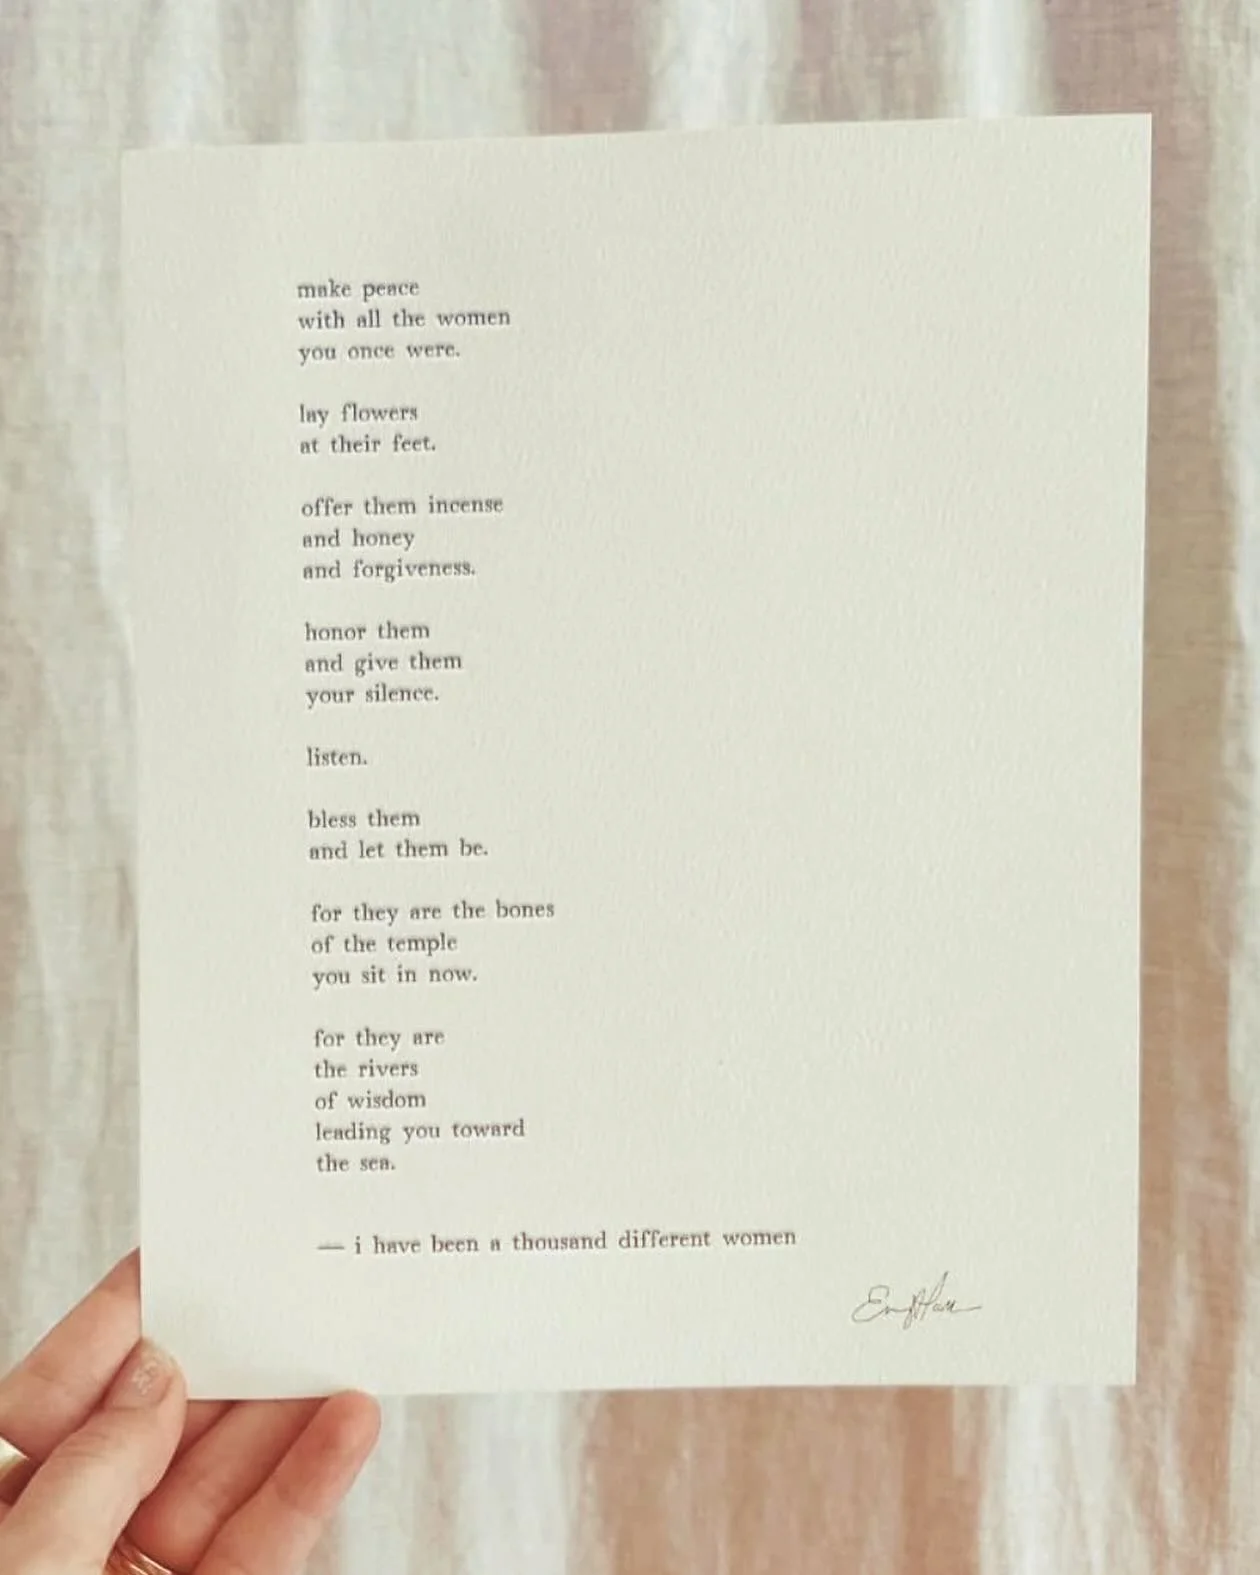 make peace
with all the women
you once were.
lay flowers
at their feet.
offer them incense
and honey
and forgiveness.
honor them
and give them
your silence.
listen.
bless them
and let them be.
for they are the bones
of the temple
you sit in now.
for they are
the rivers
of wisdom
leading you toward
the sea.
— i have been a thousand different women